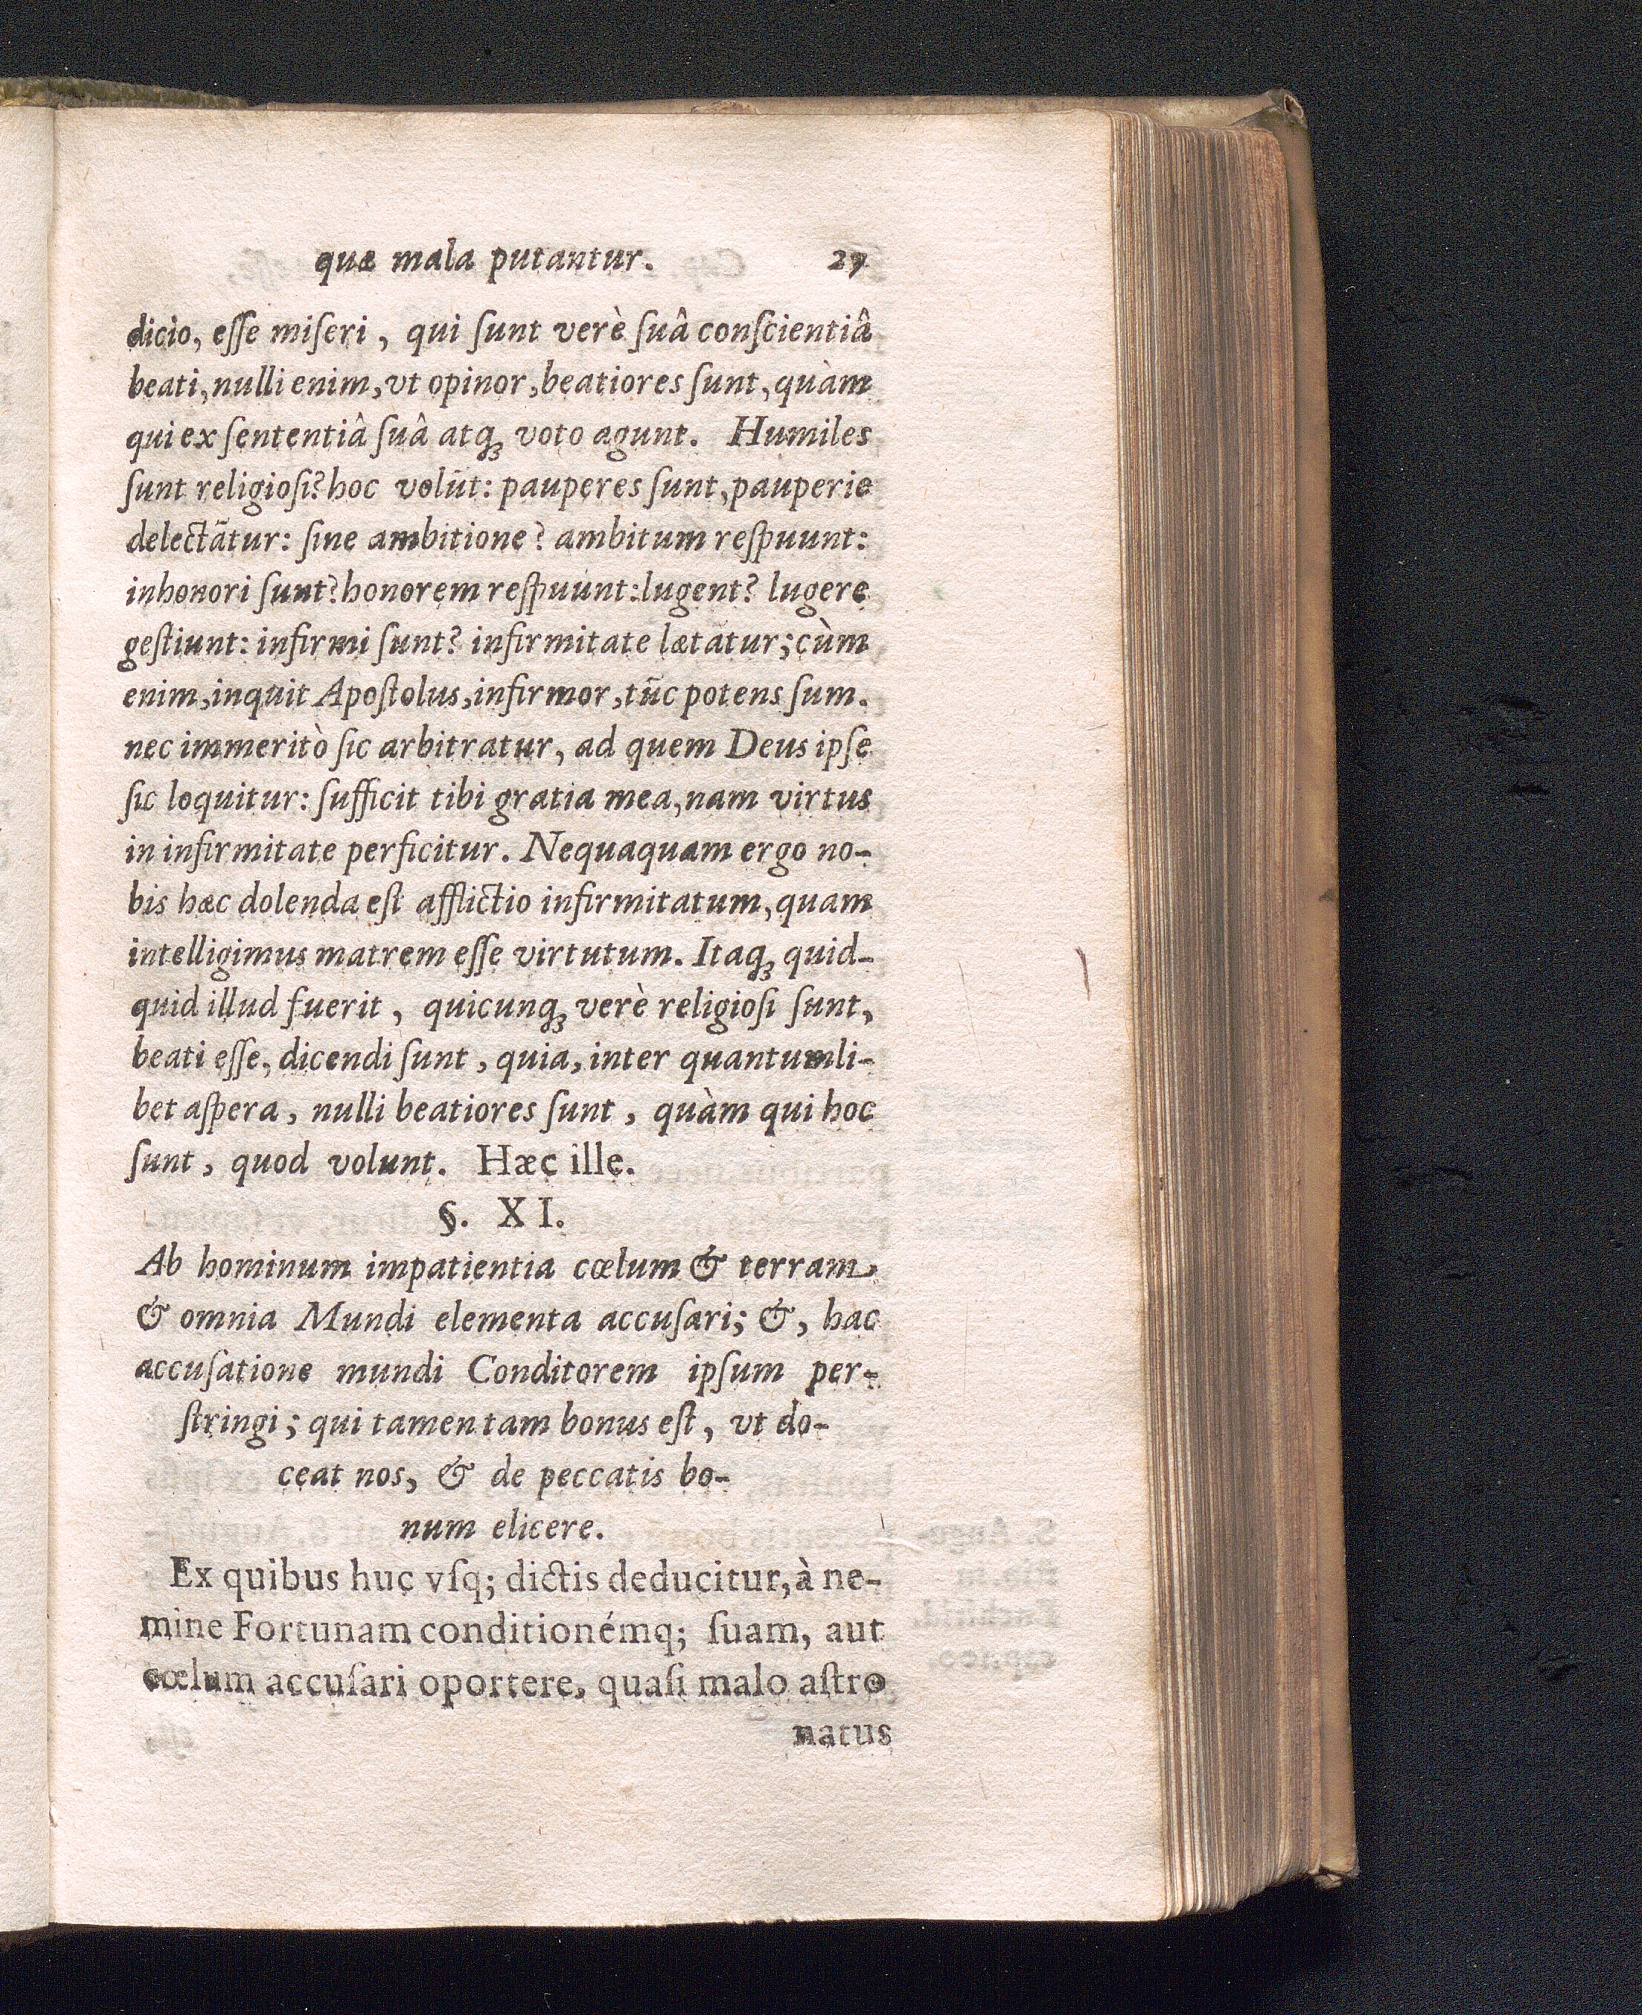 quæ mala putantur. 27
dicio, eſſe miſeri, qui ſunt verè ſuâ conſcientiâ
beati, nulli enim, vt opinor, beatiores ſunt, quàm
qui ex ſententiâ ſuâ atq; voto agunt. Humiles
ſunt religioſi? hoc volũt: pauperes ſunt, pauperie
delectãtur: ſine ambitione? ambitum reſpuunt:
inhonori ſunt? honorem reſpuunt: lugent? lugere
geſtiunt: infirmi ſunt? infirmitate lætãtur; cùm
enim, inquit Apoſtolus, infirmor, tũc potens ſum.
nec immeritò ſic arbitratur, ad quem Deus ipſe
ſic loquitur: ſufficit tibi gratia mea, nam virtus
in infirmitate perficitur. Nequaquam ergo no-
bis hæc dolenda eſt afflictio infirmitatum, quam
intelligimus matrem eſſe virtutum. Itaq; quid-
quid illud fuerit, quicunq; verè religioſi ſunt,
beati eſſe, dicendi ſunt, quia, inter quantumli-
bet aſpera, nulli beatiores ſunt, quàm qui hoc
ſunt, quod volunt. Hæc ille.
§. XI.
Ab hominum impatientia cœlum & terram
& omnia Mundi elementa accuſari; &, hac
accuſatione mundi Conditorem ipſum per-
ſtringi; qui tamen tam bonus eſt, vt do-
ceat nos, & de peccatis bo-
num elicere.
Ex quibus huc vſq; dictis deducitur, à ne-
mine Fortunam conditionémq; ſuam, aut
cœlum accuſari oportere, quaſi malo aſtro
natus